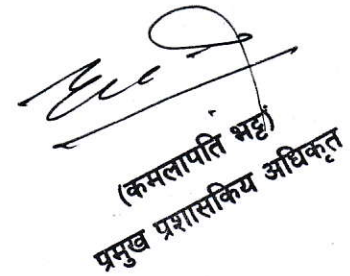 (कमलापति भट्ट)
प्रमुख प्रशासकिय अधिकृत